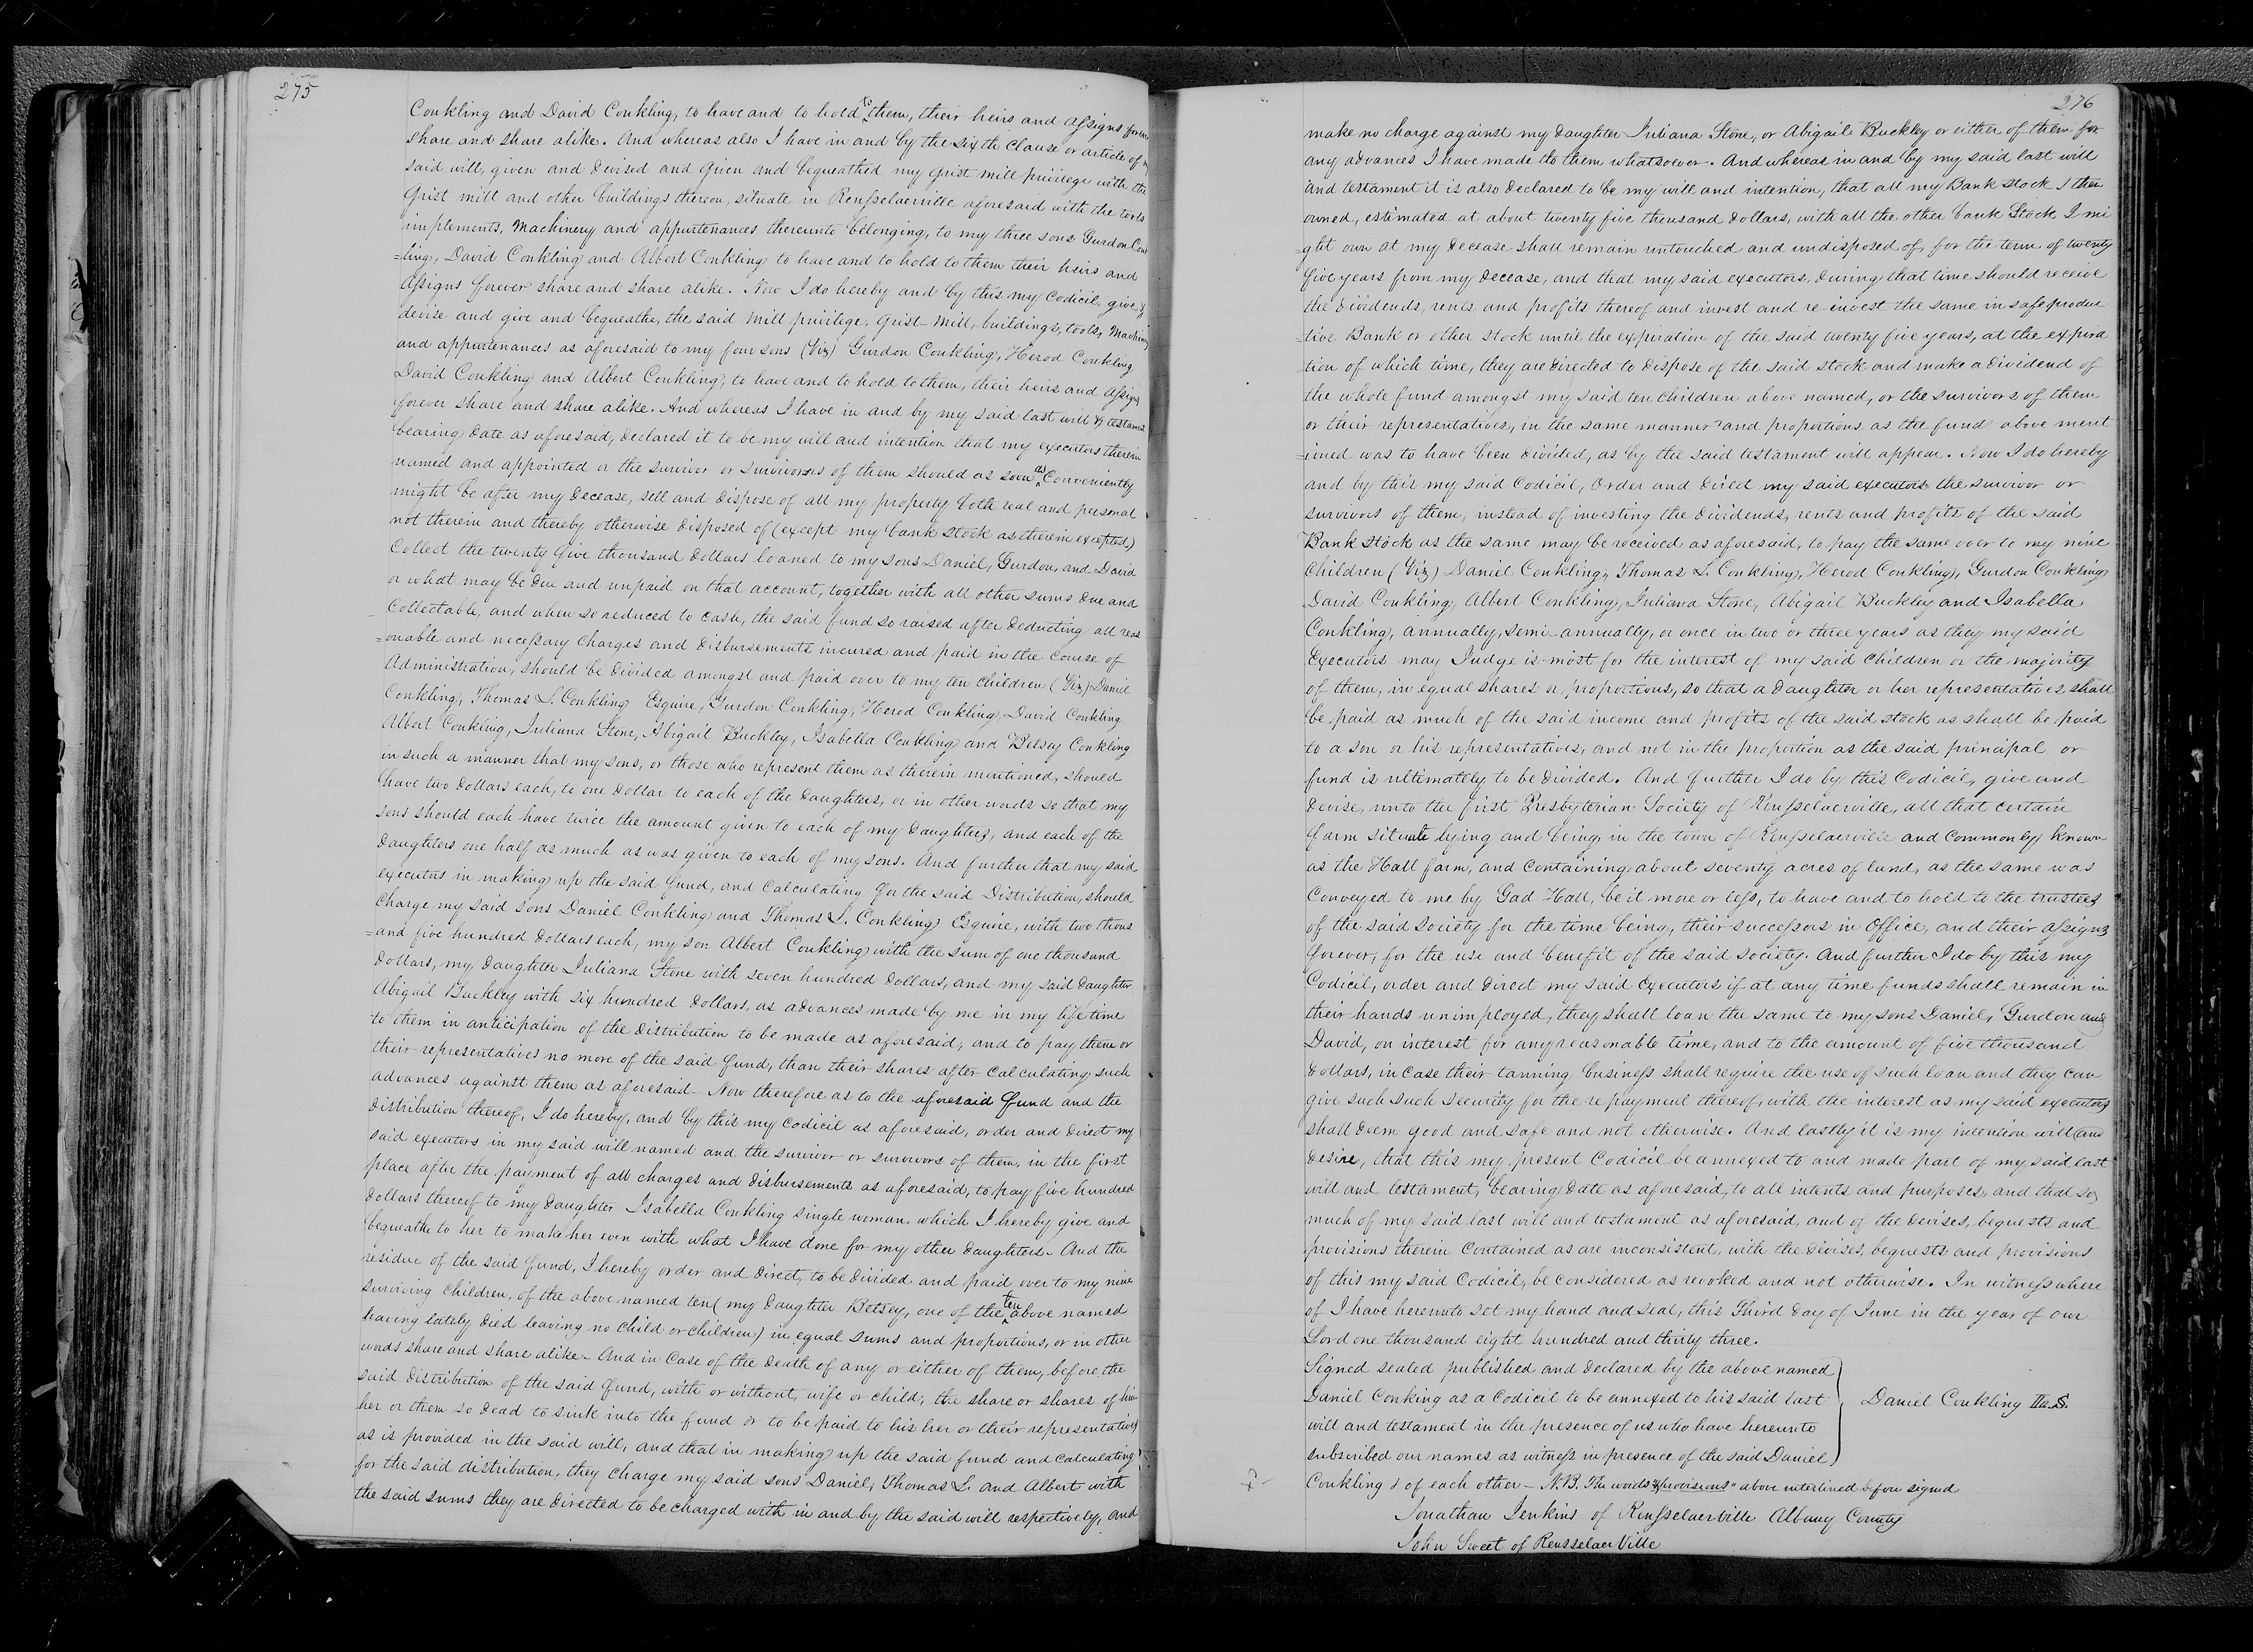 275
Conkling and David Conkling, to have and to hold to them, their heirs and assigns forever
share and share alike. And whereas also I have in and by the sixth clause or article of my
said will, given and devised and given and bequeathed my grist mill privilege with the
Grist mill and other buildings thereon, situate in Rensselaerville aforesaid with the tools
implements, Machinery and appurtenances thereunto belonging, to my three sons Gurdon Conk
=ling, David Conkling and Albert Conkling to have and to hold to them their heirs and
assigns forever share and share alike. Now I do hereby and by this my Codicil, give &
devise and give and bequeathe, the said Mill privilege, Grist Mill, buildings, tools, Machinery
and appurtenances as aforesaid to my four sons (Viz) Gurdon Conkling, Herod Conkling
David Conkling and Albert Conkling, to have and to hold to them, their heirs and assigns
forever share and share alike. And whereas I have in and by my said last will & testament
bearing date as aforesaid, declared it to be my will and intention that my executors therein
named and appointed or the survivor or survivors of them should as soon as Conveniently
might be after my decease, sell and dispose of all my property both real and personal
not therein and thereby otherwise disposed of (except my bank stock as therein excepted)
Collect the twenty five thousand dollars loaned to my sons Daniel, Gurdon, and David
or what may be due and unpaid on that account, together with all other sums due and
Collectable, and when so reduced to cash, the said fund so raised after deducting all reas
=onable and necessary charges and disbursements incured and paid in the course of
Administration, should be divided amongst and paid over to my ten children (Viz) Daniel
Conkling, Thomas L. Conkling Esquire, Gurdon Conkling, Herod Conkling, David Conkling
Albert Conkling, Juliana Stone, Abigail Buckley, Isabella Conkling and Betsay Conkling
in such a manner that my sons, or those who represent them as therein mentioned, should
have two dollars each, to one dollar to each of the daughters, or in other words so that my
sons should each have twice the amount given to each of my daughters, and each of the
daughters one half as much as was given to each of my sons. And further that my said
executors in making up the said fund, and calculating for the said Distribution, should
Charge my said sons Daniel Conkling and Thomas L. Conkling Esquire, with two thous
=and five hundred dollars each, my son Albert Conkling with the sum of one thousand
dollars, my daughter Juliana Stone with seven hundred dollars, and my said daughter
Abigail Buckley with six hundred dollars, as advances made by me in my life time
to them in anticipation of the distribution to be made as aforesaid, and to pay them or
their representatives no more of the said fund, than their shares after calculating such
advances against them as aforesaid - Now therefore as to the aforesaid fund and the
distribution thereof, I do hereby, and by this my codicil as aforesaid, order and direct my
said executors in my said will named and the survivor or survivors of them, in the first
place after the payment of all charges and disbursements as aforesaid, to pay five hundred
dollars thereof to my daughter Isabella Conkling single woman, which I hereby give and
bequeathe to her to make her even with what I have done for my other daughters - And the
residue of the said fund, I hereby order and direct, to be divided and paid over to my nine
surviving children, of the above named ten (my daughter Betsey, one of the ten above named
having lately died leaving no child or children) in equal sums and proportions, or in other
words share and share alike - And in case of the death of any or either of them, before the
said distribution of the said fund, with or without, wife or child, the share or shares of him
her or them so dead to sink into the fund or to be paid to his her or their representatives
as is provided in the said will, and that in making up the said fund and calculating
for the said distribution, they charge my said sons Daniel, Thomas L. and Albert with
the said sums they are directed to be charged with in and by the said will respectively, and
276
make no charge against my daughter Juliana Stone, or Abigail Buckley or either of them for
any advances I have made to them whatsoever. And whereas in and by my said last will
and testament it is also declared to be my will and intention, that all my Bank stock I then
owned, estimated at about twenty five thousand dollars, with all the other bank Stock I mi
=ght own at my decease shall remain untouched and undisposed of, for the term of twenty
five years from my decease, and that my said executors, during that time should receive
the dividends, rents and profits thereof and invest and re-invest the same in safe produc
=tive Bank or other stock until the expiration of the said twenty five years, at the expira
tion of which time, they are directed to dispose of the said stock and make a dividend of
the whole fund amongst my said ten children above named, or the survivors of them
or their representatives, in the same manner and proportions as the fund above ment
=ined was to have been divided, as by the said testament will appear. Now I do hereby
and by this my said Codicil, Order and direct my said executors the survivor or
survivors of them, instead of investing the dividends, rents and profits of the said
Bank stock as the same may be received as aforesaid, to pay the same over to my nine
Children (Viz) Daniel Conkling, Thomas L. Conkling, Herod Conkling, Gurdon Conkling
David Conkling, Albert Conkling, Juliana Stone, Abigail Buckley and Isabella
Conkling, annually, semi-annually, or once in two or three years as they my said
Executors may Judge is most for the interest of my said children or the majority
of them, in equal shares or proportions, so that a daughter or her representatives shall
be paid as much of the said income and profits of the said stock as shall be paid
to a son or his representatives, and not in the proportion as the said principal or
fund is ultimately to be divided. And further I do by this Codicil, give and
devise, unto the first Presbyterian Society of Rensselaerville, all that certain
farm situate lying and being in the town of Rensselaerville and commonly known
as the Hall farm, and containing about seventy acres of land, as the same was
Conveyed to me by Gad Hall, be it more or less, to have and to hold to the trustees
of the said Society for the time being, their successors in Office, and their assigns
forever, for the use and benefit of the said society. And further I do by this my
Codicil, order and direct my said Executors if at any time funds shall remain in
their hands unimployed, they shall loan the same to my sons Daniel, Gurdon and
David, on interest for any reasonable time, and to the amount of five thousand
dollars, in case their tanning business shall require the use of such loan and they can
give such such security for the repayment thereof, with the interest as my said executors
shall deem good and safe and not otherwise. And lastly it is my intention will and
desire, that this my present Codicil be annexed to and made part of my said last
will and testament, bearing date as aforesaid, to all intents and purposes, and that so
much of my said last will and testament as aforesaid, and of the devises, bequests and
provisions therein contained as are inconsistent, with the devises, bequests and provisions
of this my said Codicil, be considered as revoked and not otherwise. In witness where
of I have hereunto set my hand and seal, this Third day of June in the year of our
Lord one thousand eight hundred and thirty three.
Signed sealed published and declared by the above named
Daniel Conking as a Codicil to be annexed to his said last
Daniel Conkling
will and testament in the presence of us who have hereunto
subscribed our names as witness in presence of the said Daniel
Conkling & of each other - N.B. The words "& provisions" above interlined before signed
Jonathan Jenkins of Rensselaerville Albany County
John Sweet of Rensselaer Ville